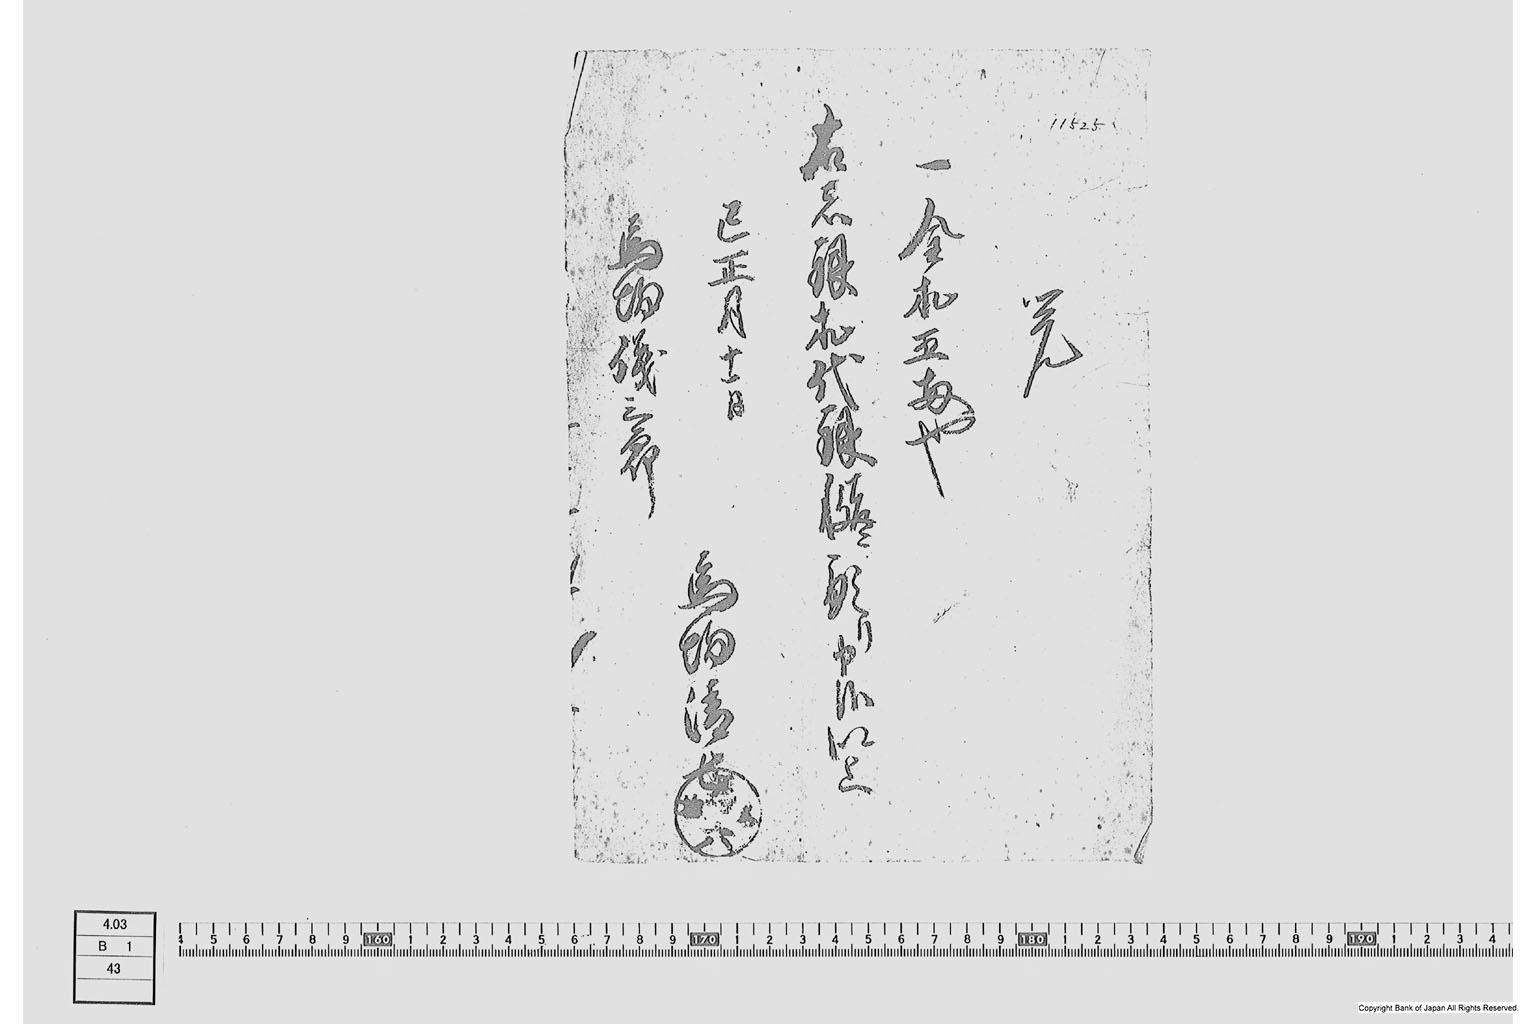 11525
覚
一金札五両也
右者銀札代銀慥ニ
請取申候以上
巳正月十一日
馬場清
馬場磯三郎
4.03
B 1
43
4 5 6 7 8 9 160 1 2 3 4 5 6 7 8 9 170 1 2 3 4 5 6 7 8 9 180 1 2 3 4 5 6 7 8 9 190 1 2 3 4
Copyright Bank of Japan All Rights Reserved.